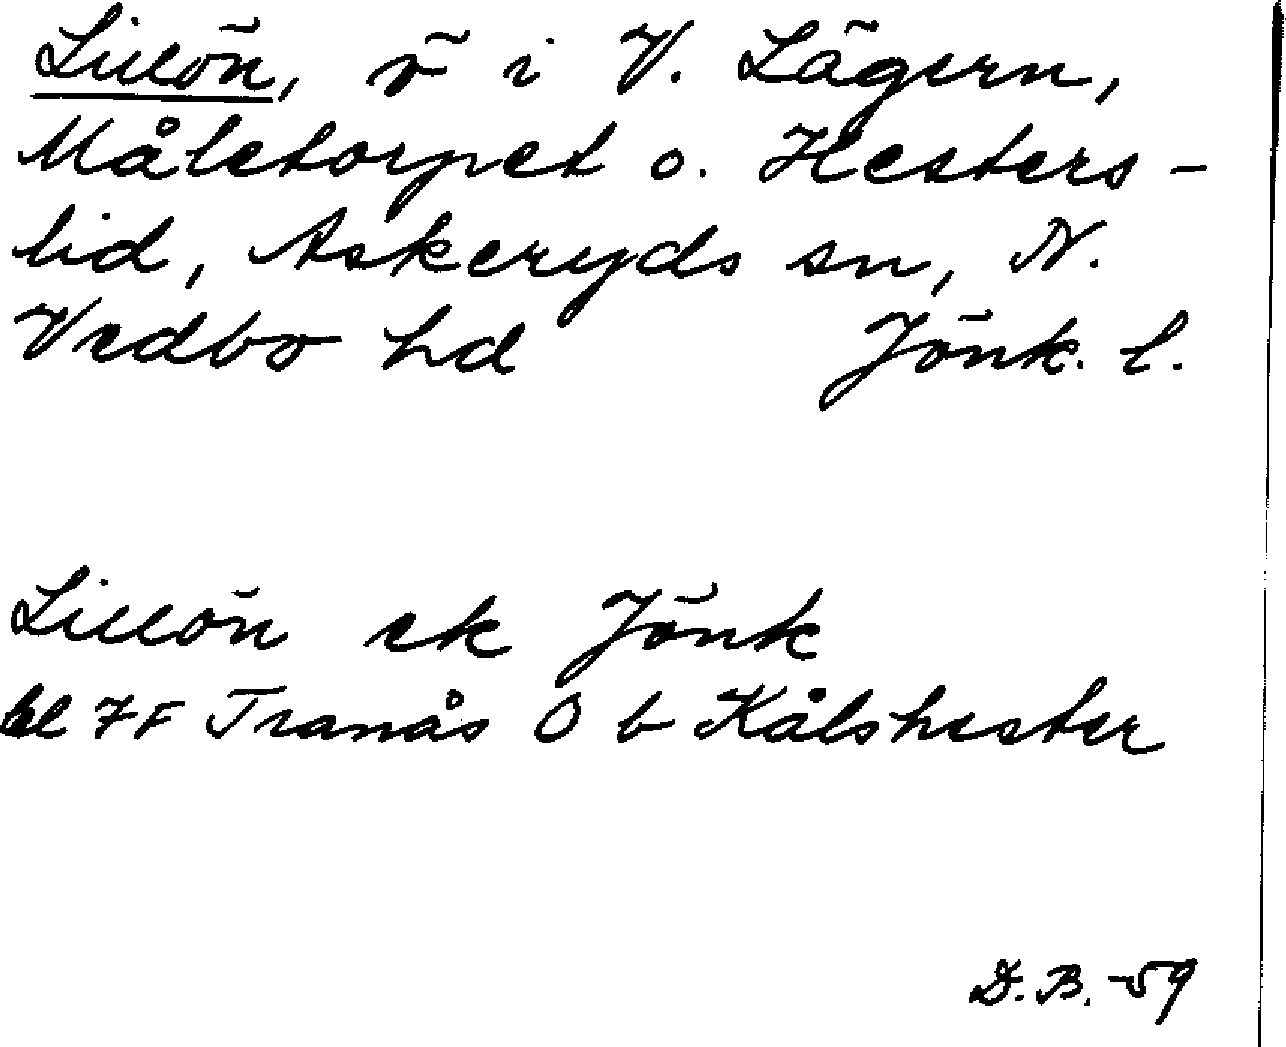 Lillön, ö i V. Lägern,
Måletorpet o. Hesters-
lid, Askeryds sn, N.
Vedbo hd Jönk. l.
Lillön ek Jönk
bl 7F Tranås O b Kålshester
D. B. -59